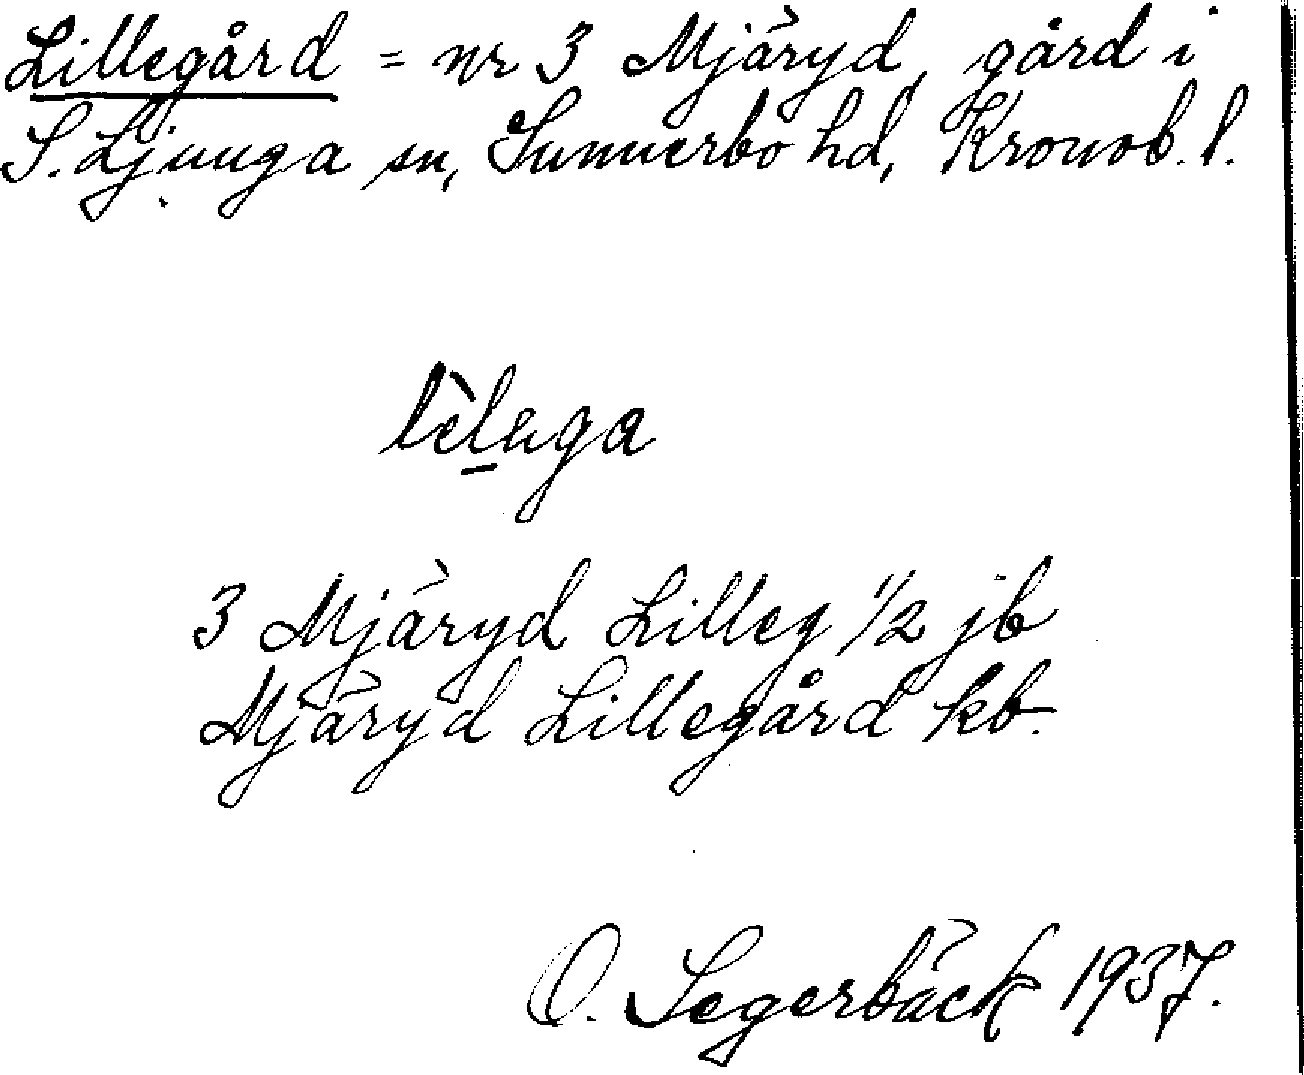 Lillegård = nr 3 Mjäryd, gård i
S. Ljunga sn, Sunnerbo hd, Kronob. l.
3 Mjäryd Lilleg 1/2 jb
Mjäryd Lillegård kb.
O. Segerbäck 1937.